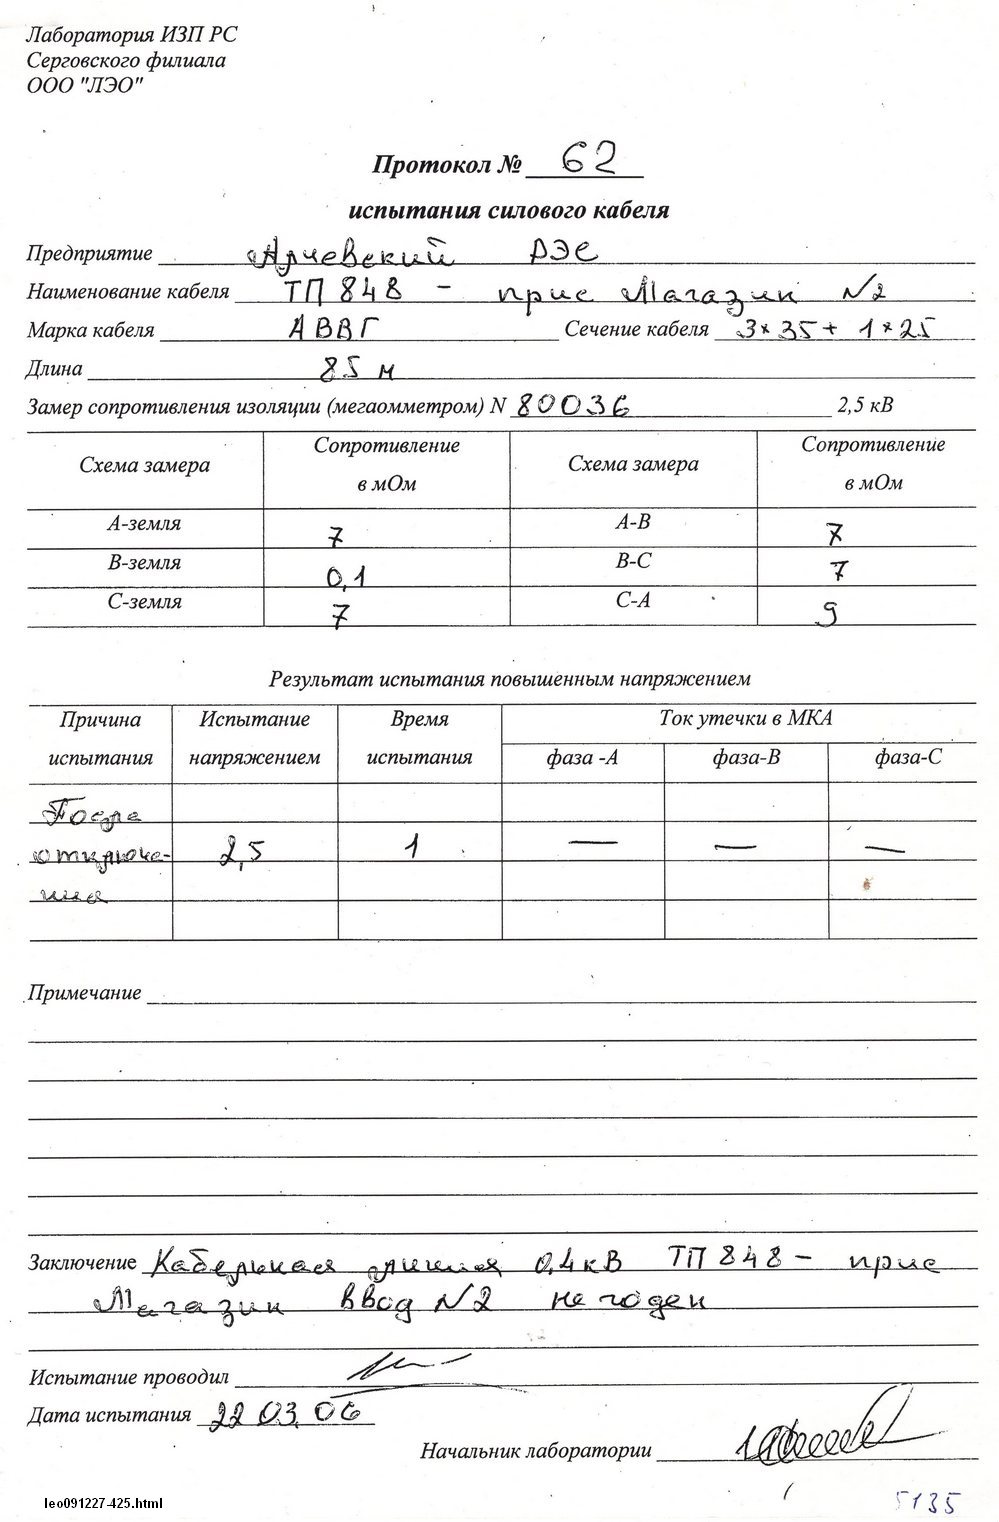 Лаборатория ИЗП РС
Серговского филиала
ООО "ЛЭО"
Протокол № 62
испытания силового кабеля
Предприятие Алчевский РЭС
Наименование кабеля ТП 848 - прис Магазин N2
Марка кабеля АВВГ Сечение кабеля 3×35 + 1×25
Длина 85 м
Замер сопротивления изоляции (мегаомметром) N 80036 2,5 кВ
Схема замера Сопротивление в мОм Схема замера Сопротивление в мОм
А-земля 7 А-В 7
В-земля 0,1 В-С 7
С-земля 7 С-А 9
Результат испытания повышенным напряжением
Причина испытания Испытание напряжением Время испытания Ток утечки в МКА
фаза -А фаза-В фаза-С
После
отключе- 2,5 1 — — —
ния
Примечание
Заключение Кабельная линия 0,4 кВ ТП 848 - прис
Магазин ввод N2 не годен
Испытание проводил
Дата испытания 22 03. 06
Начальник лаборатории
leo091227-425.html
5135